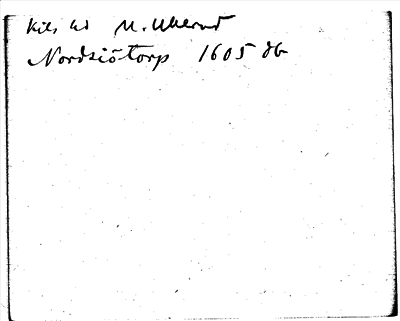 Kils hd N. Ullerud
Nordsiötorp 1605 Jb